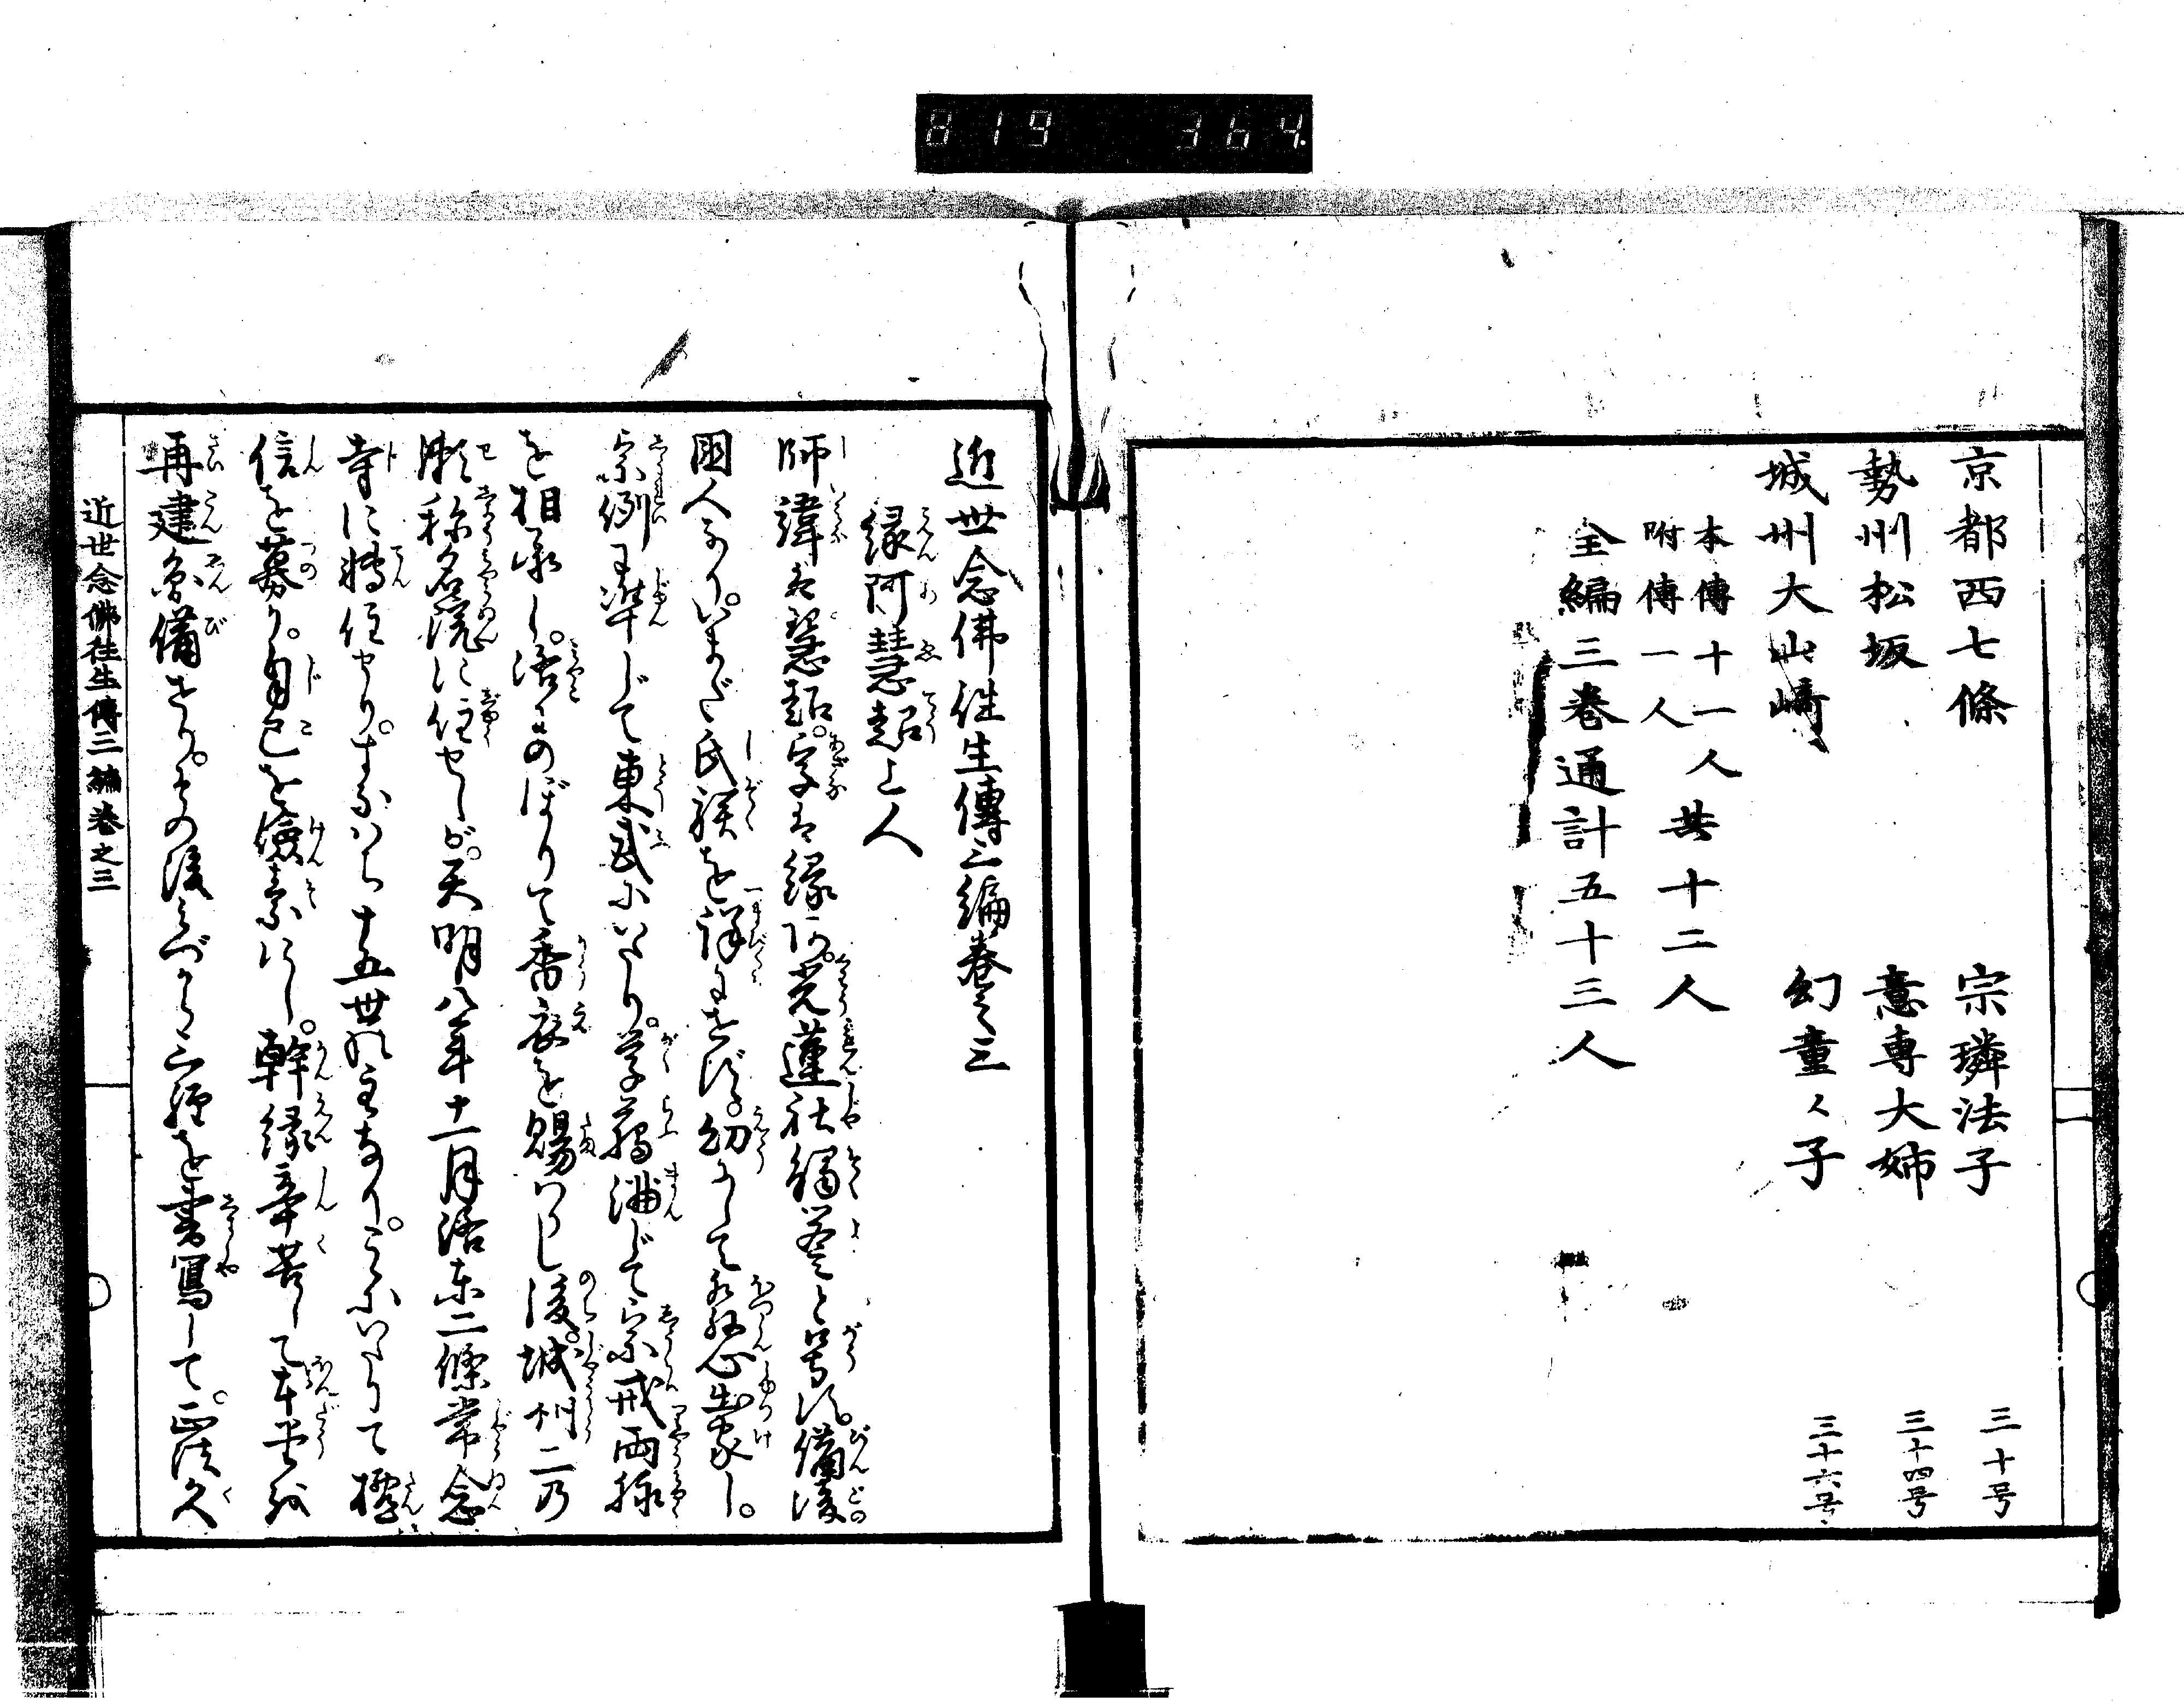 819 364
京都西七條 宗璘法子 三十号
勢州松坂 意専大姉 三十四号
城州大山崎 幻童々子 三十六号
本傳十一人
附傳一人 共十二人
全編三巻通計五十三人
近世念佛往生傳三編巻之三
縁阿慧超上人
師諱は慧超。字は縁阿。光蓮社
と号す。備後
国人なり。いまだ氏族を詳にせず。幼にして発心出家し。
宗例に準じて東武にいたり。学
満じて宗戒両脉
を相承し。洛にのぼりて香衣を賜はりし後。城州二乃
瀬称名院に住せしが。天明八年十一月洛東二條常念
寺に轉住せり。すなはち十五世の主なり。こゝにいたりて檀
信を募り。自己を儉素にし。幹縁辛苦して本堂を
再建
備せり。その後
三經を書寫して。正法久
近世念佛往生傳三編巻之三